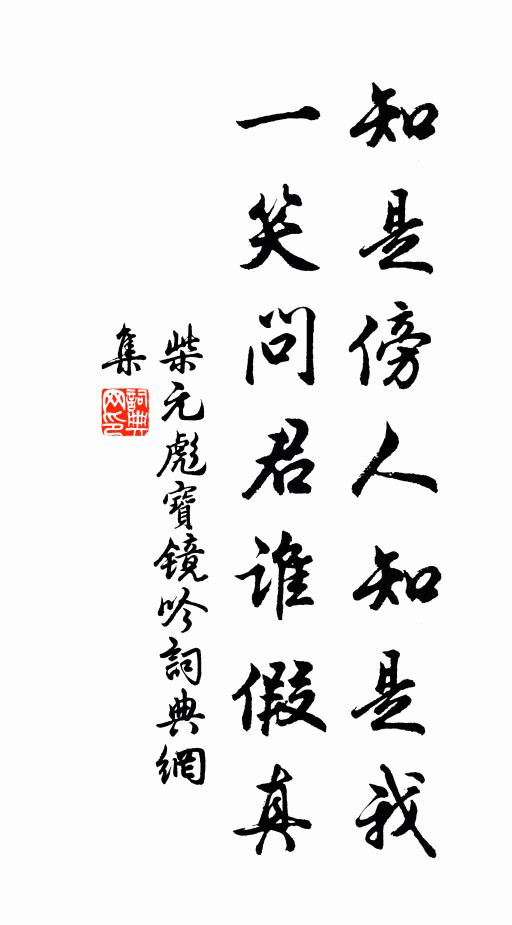 知是傍人知是我
一笑问君谁假真
柴元彪寶鏡吟詞典網
集
詞典
网印